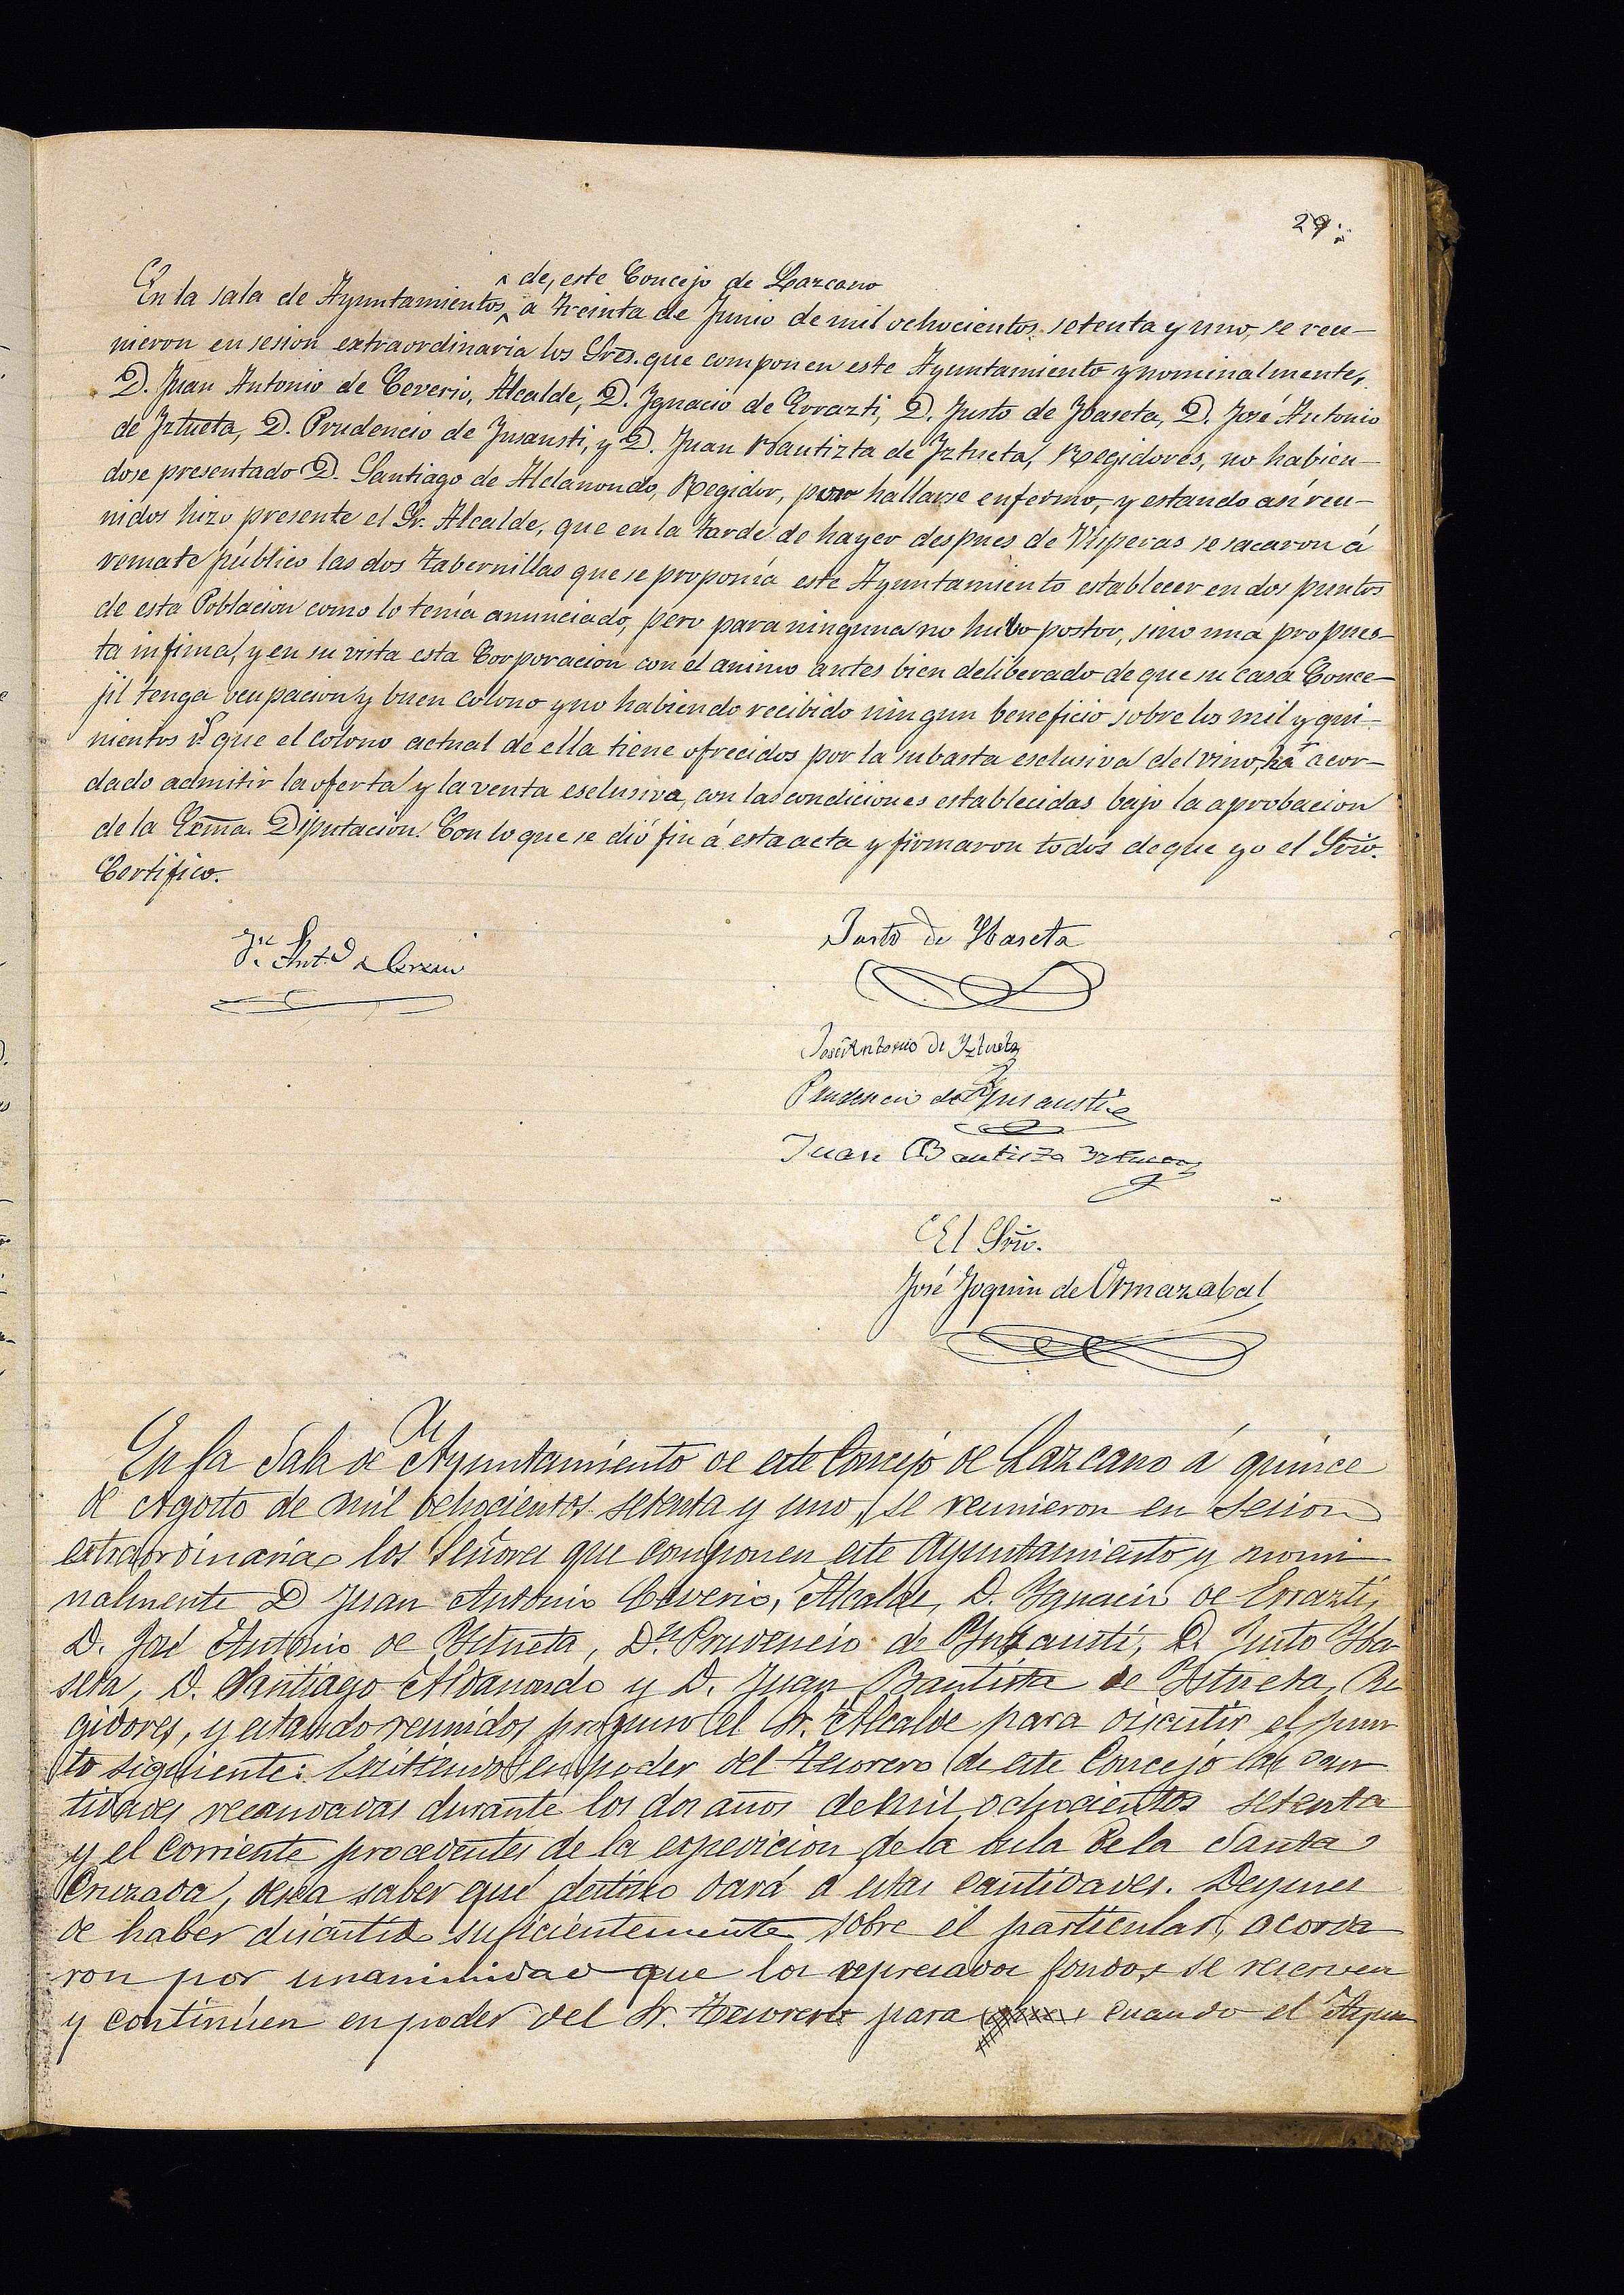 29.
de, este Concejo de Lazcano
En la sala de Ayuntamientos, a treinta de Junio de mil ochocientos setenta y uno, se reu-
nieron en sesion extraordinaria los Sres. que componen este Ayuntamiento y nominalmente,
D. Juan Antonio de Ceverio, Alcalde, D. Ygnacio de Errazti, D. Justo de Ybaseta, D. José Antonio
de Yztueta, D. Prudencio de Ynsausti, y D. Juan Bautizta de Yztueta, Regidores, no habien-
dose presentado D. Santiago de Aldanondo, Regidor, por hallarse enfermo, y estando asi reu-
nidos hizo presente el Sr. Alcalde, que en la tarde de hayer despues de Visperas se sacaron á
remate público las dos tabernillas que se proponía este Ayuntamiento establecer en dos puntos
de esta Poblacion como lo tenía anunciado, pero para ninguna no hubo postor, sino una propues-
ta infima, y en su vista esta Corporacion con el animo antes bien deliberado de que su casa Conce-
jil tenga ocupacion y buen colono y no habiendo recibido ningun beneficio sobre los mil y qui-
nientos rs. que el colono actual de ella tiene ofrecidos por la subasta esclusiva del vino, ha acor-
dado admitir la oferta y la venta esclusiva, con las condiciones establecidas bajo la aprobacion
de la Exma. Diputacion. Con lo que se dió fin á esta acta y firmaron todos de que yo el Srio.
Certifico.
Jn. Anto. de Ceverio
Justo de Ybaseta
José Antonio de Yztueta
Prudencio de Ynsausti
Juan Bautizta Iztueta
El Srio.
José Joquin de Ormazabal
En la Sala de Ayuntamiento de este Concejo de Lazcano á quince
de Agosto de mil ochocientos setenta y uno, se reunieron en sesion
extraordinaria los Señores que componen este Ayuntamiento y nomi
nalmente D Juan Antonio Ceverio, Alcalde, D. Ygnacio de Errazti,
D. José Antonio de Yztueta, Dn. Prudencio de Ynsausti, D. Justo Yba-
seta, D. Santiago Aldanondo y D. Juan Bautista de Yztueta, Re
gidores, y estando reunidos propuso el Sr. Alcalde para discutir el pun
to siguiente: Existiendo en poder del Tesorero de este Concejo las can
tidades recaudadas durante los dos años de mil ochocientos setenta
y el corriente procedentes de la espedicion de la bula de la Santa
Cruzada, desea saber qué destino dará á estas cantidades. Despues
de haber discutido suficientemente sobre el particular, acorda
ron por unanimidad que los espresados fondos se reserven
y continúen en poder del Sr. Tesorero para cuando el Ayun